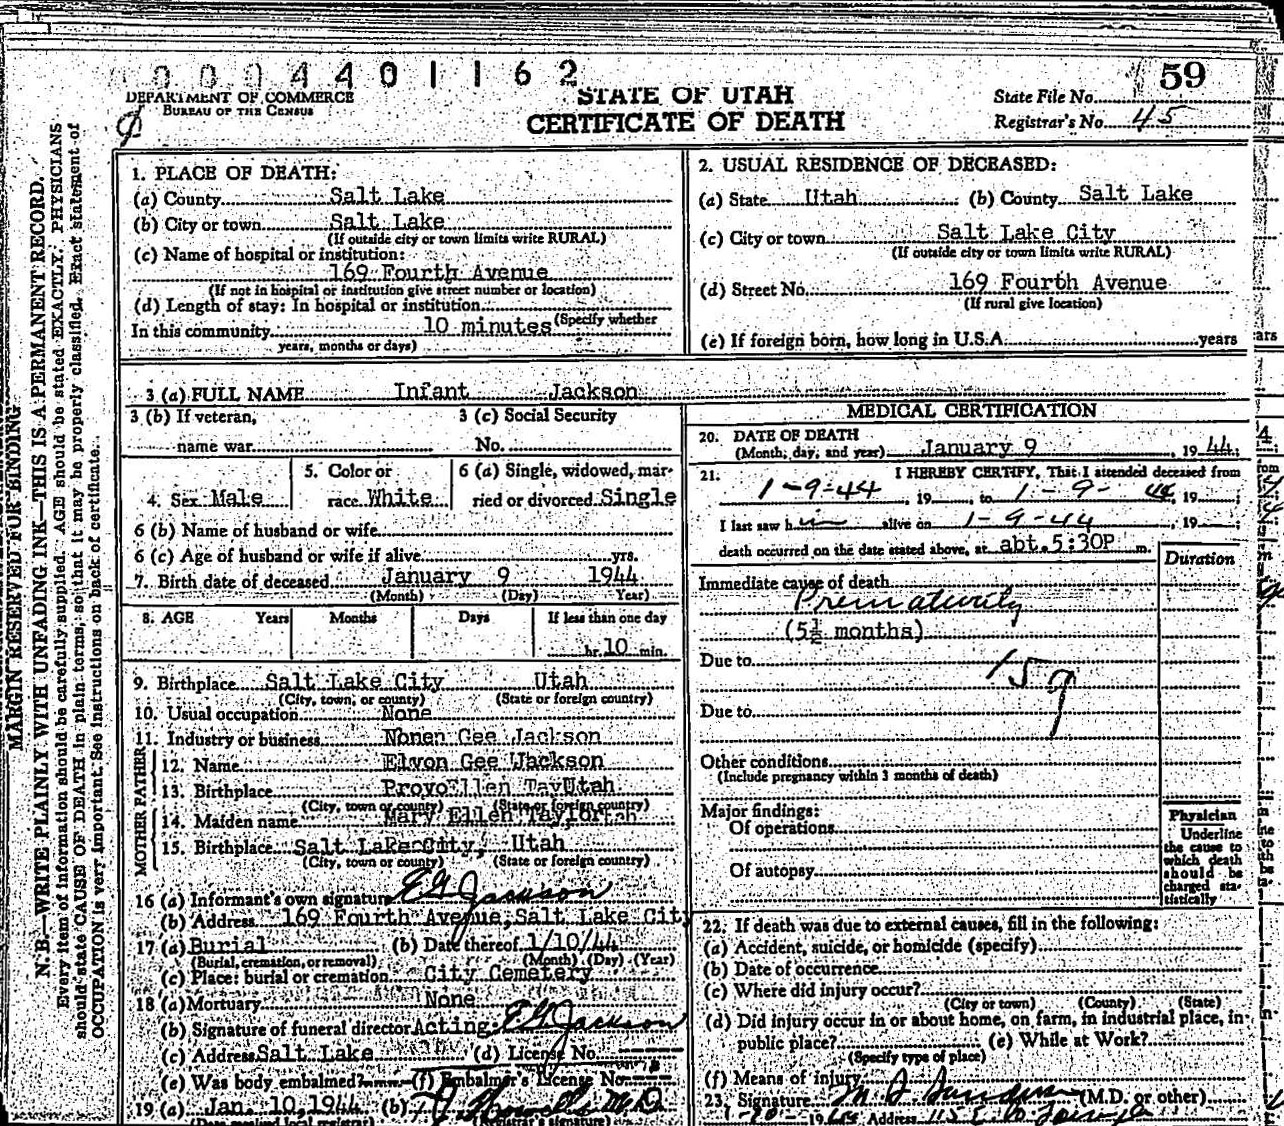 0 0 0 4 4 0 1 1 6 2
59
DEPARTMENT OF COMMERCE
BUREAU OF THE CENSUS
STATE OF UTAH
CERTIFICATE OF DEATH
State File No.
Registrar's No. 45
MARGIN RESERVED FOR BINDING
N. B.—WRITE PLAINLY WITH UNFADING INK—THIS IS A PERMANENT RECORD.
Every item of information should be carefully supplied. AGE should be stated EXACTLY. PHYSICIANS
should state CAUSE OF DEATH in plain terms, so that it may be properly classified. Exact statement of
OCCUPATION is very important. See instructions on back of certificate.
1. PLACE OF DEATH:
(a) County Salt Lake
(b) City or town Salt Lake
(If outside city or town limits write RURAL)
(c) Name of hospital or institution:
169 Fourth Avenue
(If not in hospital or institution give street number or location)
(d) Length of stay: In hospital or institution
(Specify whether
In this community 10 minutes
years, months or days)
2. USUAL RESIDENCE OF DECEASED:
(a) State Utah (b) County Salt Lake
(c) City or town Salt Lake City
(If outside city or town limits write RURAL)
(d) Street No. 169 Fourth Avenue
(If rural give location)
(e) If foreign born, how long in U.S.A. years
3 (a) FULL NAME Infant Jackson
3 (b) If veteran,
name war
3 (c) Social Security
No.
4. Sex Male
5. Color or
race White
6 (a) Single, widowed, mar-
ried or divorced Single
6 (b) Name of husband or wife
6 (c) Age of husband or wife if alive yrs.
7. Birth date of deceased January 9 1944
(Month) (Day) Year)
8. AGE Years Months Days If less than one day
hr. 10 min.
9. Birthplace Salt Lake City Utah
(City, town, or county) (State or foreign country)
10. Usual occupation None
11. Industry or business None Gee Jackson
MOTHER FATHER
12. Name Elvon Gee Jackson
13. Birthplace Provo Utah
(City, town or county) (State or foreign country)
14. Maiden name Mary Ellen Taylor
15. Birthplace Salt Lake City, Utah
(City, town or county) (State or foreign country)
16 (a) Informant's own signature E G Jackson
(b) Address 169 Fourth Avenue, Salt Lake City
17 (a) Burial (b) Date thereof 1/10/44
(Burial, cremation, or removal) (Month) (Day) (Year)
(c) Place: burial or cremation City Cemetery
18 (a) Mortuary None
(b) Signature of funeral director Acting: E G Jackson
(c) Address Salt Lake (d) License No.
(e) Was body embalmed? (f) Embalmer's License No.
19 (a) Jan. 10, 1944 (b) M.D.
(Date received local registrar) (Registrar's signature)
MEDICAL CERTIFICATION
20. DATE OF DEATH
(Month, day, and year) January 9, 1944;
21. I HEREBY CERTIFY, That I attended deceased from
1-9-44, 19, to 1-9-44, 19;
I last saw him alive on 1-9-44, 19;
death occurred on the date stated above, at abt. 5:30P m.
Duration
Immediate cause of death
Prematurity
(5½ months)
Due to
159
Due to
Other conditions
(Include pregnancy within 3 months of death)
Major findings:
Of operations
Of autopsy
Physician
Underline
the cause to
which death
should be
charged sta-
tistically
22. If death was due to external causes, fill in the following:
(a) Accident, suicide, or homicide (specify)
(b) Date of occurrence
(c) Where did injury occur?
(City or town) (County) (State)
(d) Did injury occur in or about home, on farm, in industrial place, in
public place? (e) While at Work?
(Specify type of place)
(f) Means of injury
23. Signature (M.D. or other)
Address